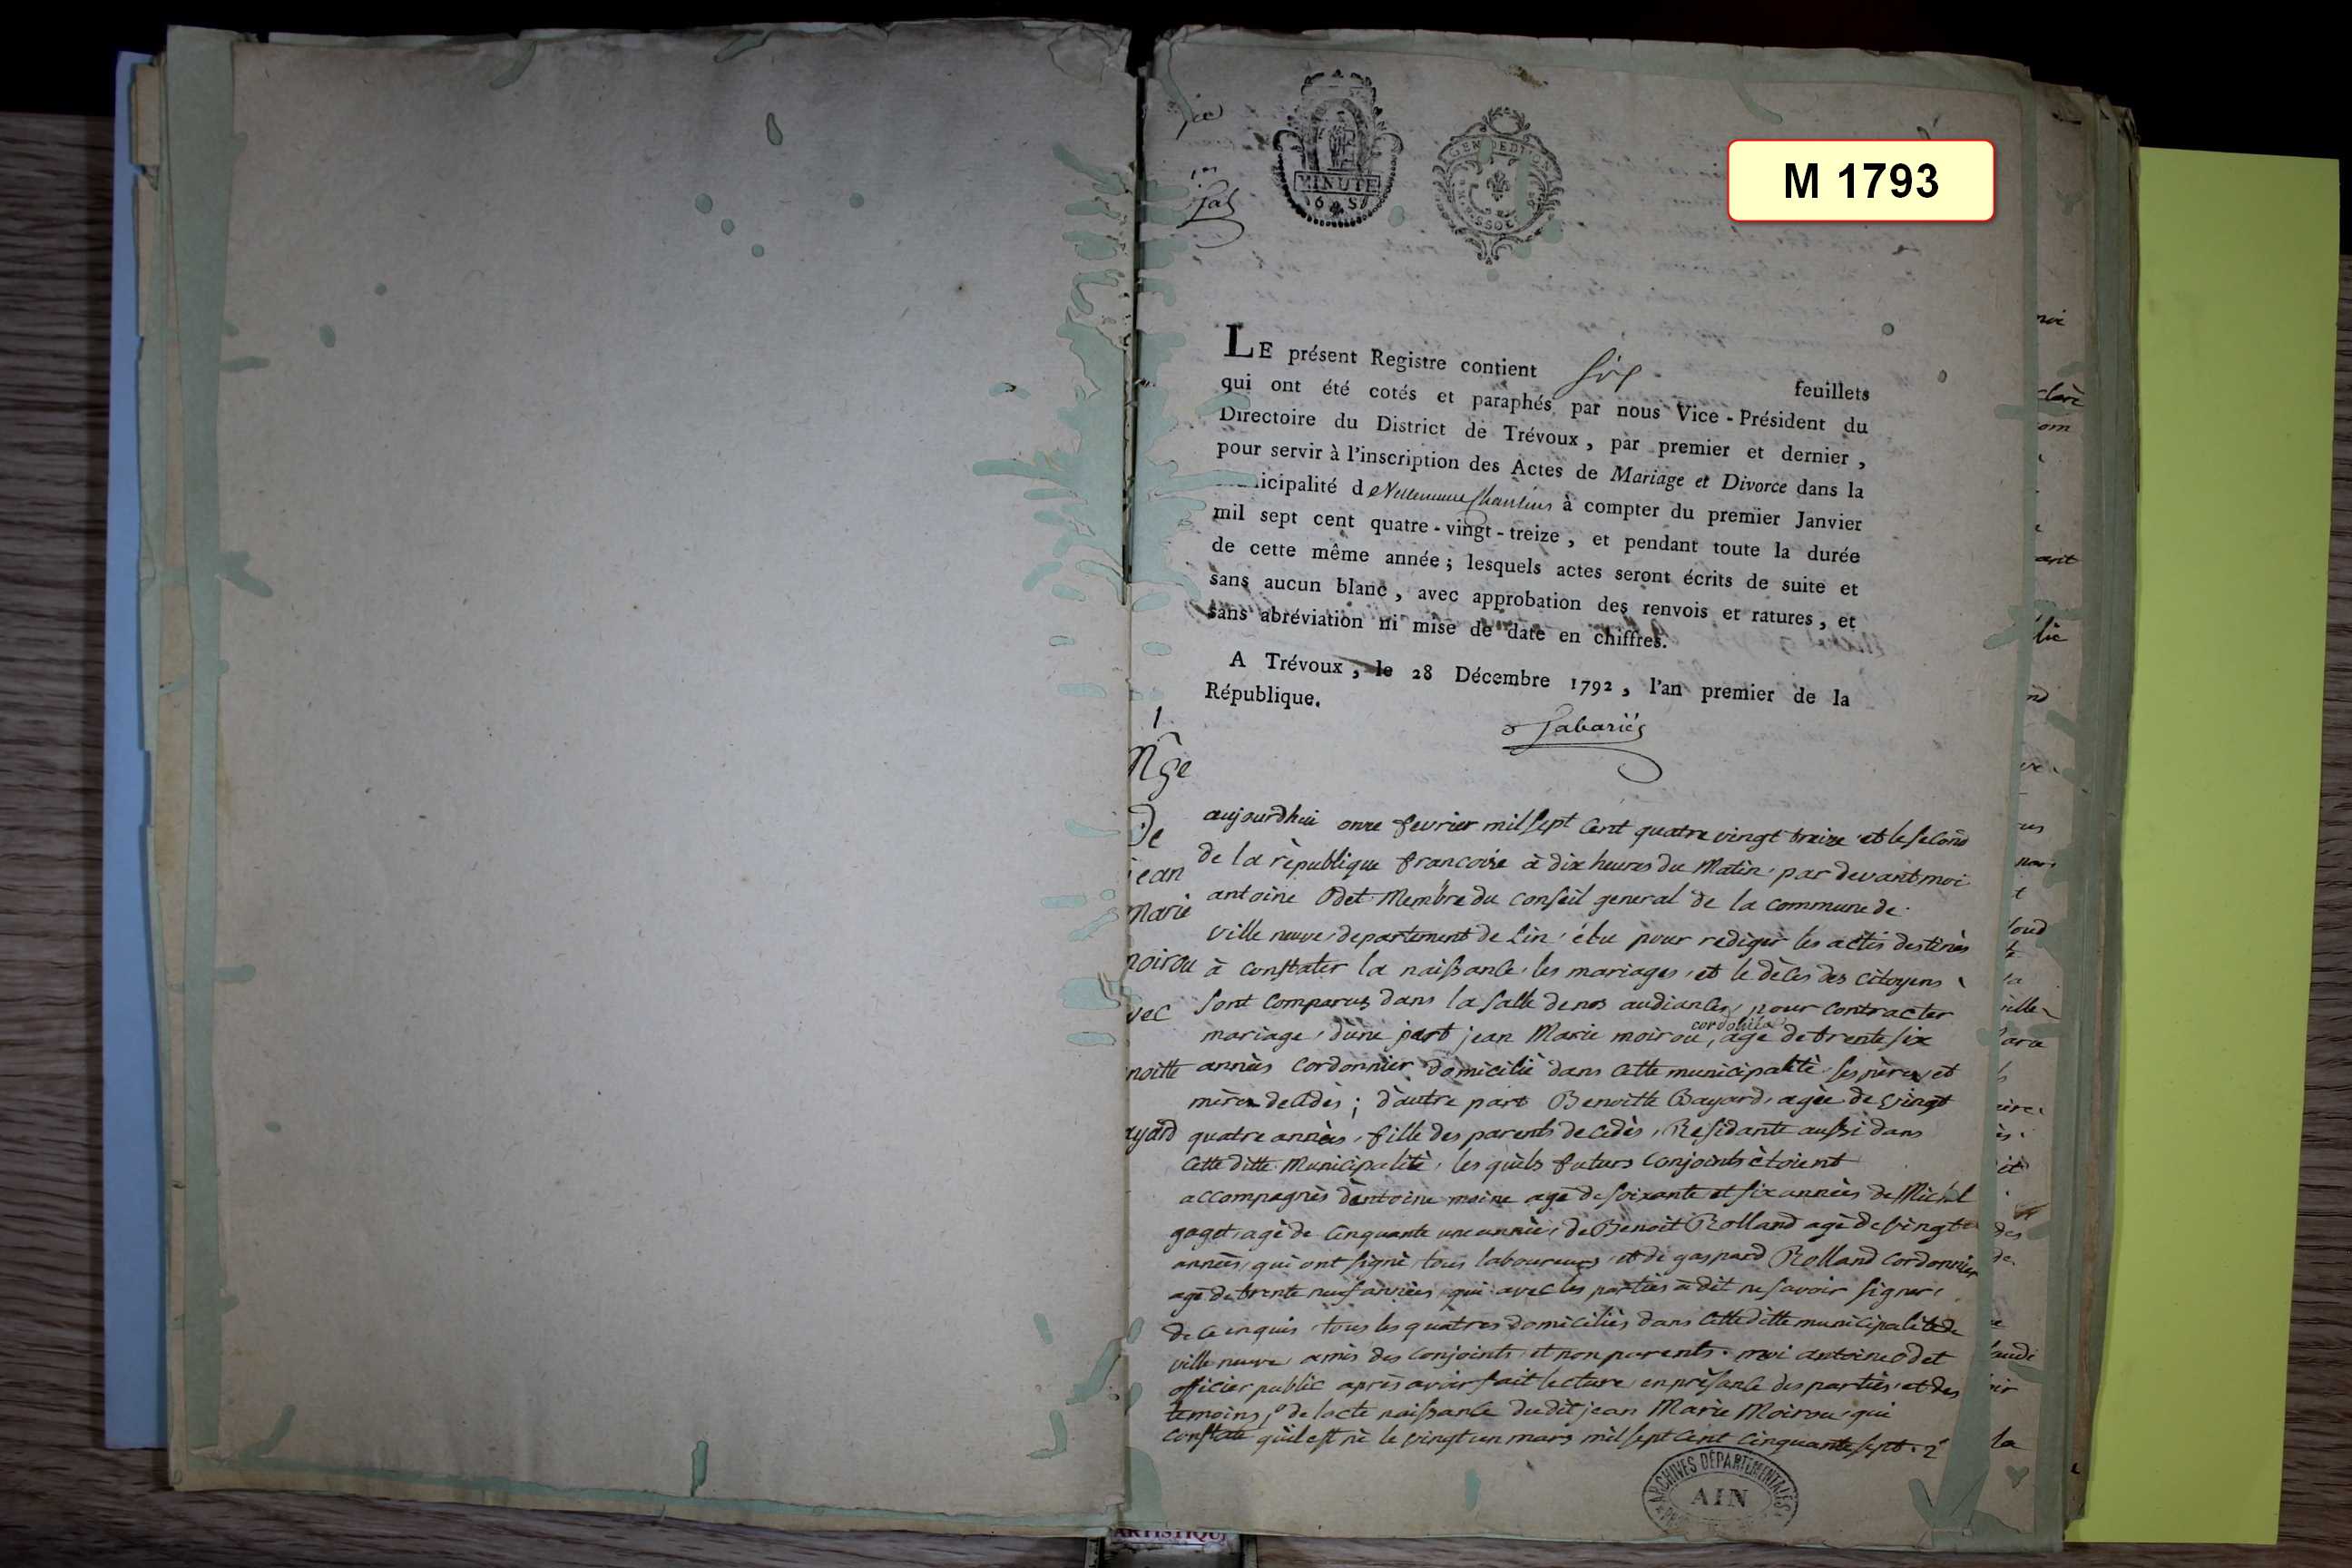 M 1793
MINUTE
6 S
LE présent Registre contient six feuillets
qui ont été cotés et paraphés par nous Vice-Président du
Directoire du District de Trévoux, par premier et dernier,
pour servir à l'inscription des Actes de Mariage et Divorce dans la
nicipalité d à compter du premier Janvier
mil sept cent quatre-vingt-treize, et pendant toute la durée
de cette même année; lesquels actes seront écrits de suite et
sans aucun blanc, avec approbation des renvois et ratures, et
sans abréviation ni mise de date en chiffres.
A Trévoux, le 28 Décembre 1792, l'an premier de la
République.
1
Mge
De
jean
Marie
moirou
avec
noitte
ayard
aujourdhui onze fevrier mil sept cent quatre vingt treize et le second
de la république francoise à dix heures du Matin par devant moi
antoine Odet Membre du conseil general de la commune de
ville neuve departement de Lin élu pour rediger les actes destinés
à constater la naissance les mariages et le décès des citoyens
sont comparus dans la salle de nos audiances pour contracter
cordonnier
mariage dune part jean Marie moirou, agé de trente six
années cordonnier domicilié dans cette municipalité ses père et
mère decedés; d'autre part Benoitte Bayard agée de vingt
quatre années fille des parents decedés Residante aussi dans
cette ditte Municipalité les quels futurs conjoints étoient
accompagnés d'antoine moine agé de soixante et six années de Michel
goget agé de cinquante une année de Benoit Rolland agé de vingt
années qui ont signé tous laboureurs et de gaspard Rolland cordonnier
agé de trente neuf années qui avec les parties a dit ne savoir signer
de ce enquis tous les quatres domiciliés dans cette ditte municipalité de
ville neuve amis des conjoints et non parents. moi antoine Odet
officier public après avoir fait lecture en présance des parties et des
temoins 1º de lacte naissance dudit jean Marie Moirou qui
constate qu'il est né le vingt un mars mil sept cent cinquante sept. 2º
ARCHIVES DÉPARTEMENTALES
AIN